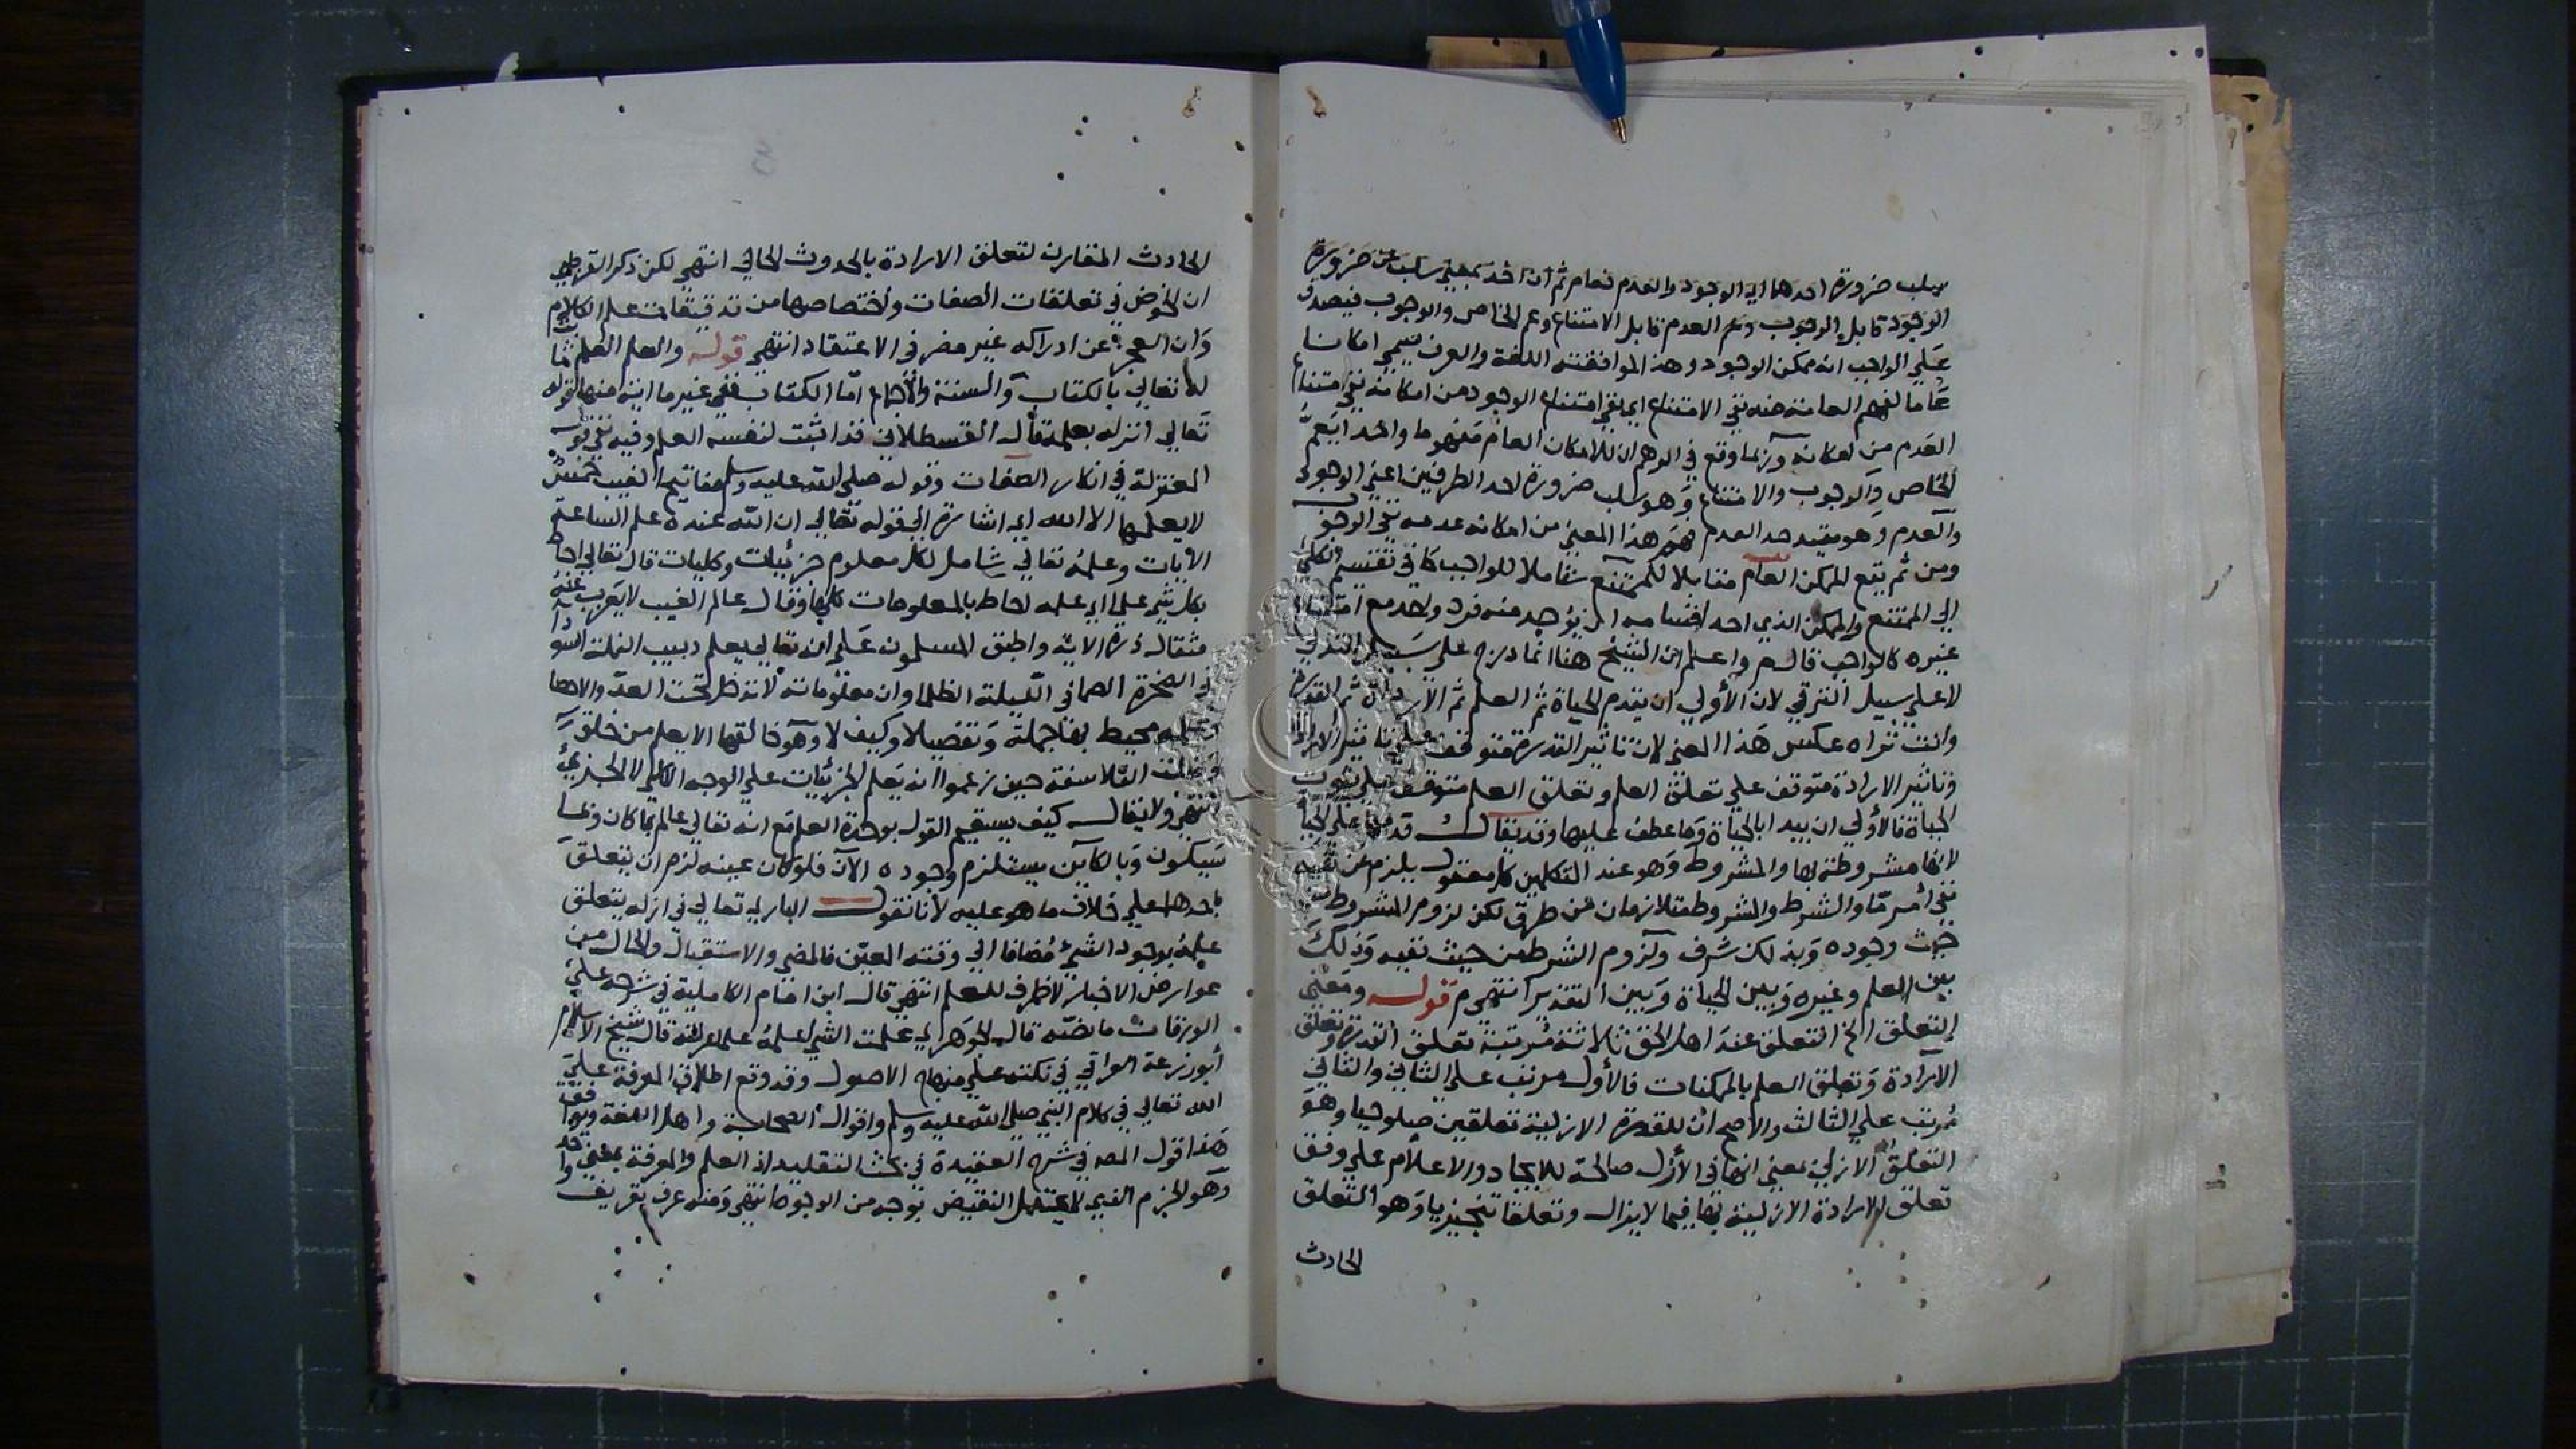 سلب ضرورة احدهما اي الوجود والعدم فعام ثم ان اخذ بمعني سلب ضرورة
الوجود قابل الوجوب وعم العدم قابل الامتناع وعم الخاص والوجوب فيصدق
علي الواجب انه ممكن الوجود وهذا الموافقته اللغة والعرف يسمي امكانا
عاما لفهم العامة منه نفي الامتناع اي نفي امتناع الوجود من امكانه نفي امتناع
العدم من امكانه وربما وقع في الوهم ان للامكان العام مفهوما واحدا يعم
الخاص والوجوب والامتناع وهو سلب ضرورة لاحد الطرفين اعني الوجود
والعدم وهو بعيد جدا لعدم فهم هذا المعني من امكانه عدمه نفي الوجوب
ومن ثم يقع الممكن العام مقابلا للممتنع شاملا للواجب كما في تقسيم الكلي
الي الممتنع والممكن الذي احد اقسامه ان يوجد منه فرد واحد مع امتناع
غيره كالواجب قال م واعلم ان الشيخ هنا انما درج علي سبيل التدلي
لا علي سبيل الترقي لان الأولي ان يقدم الحياة ثم العلم ثم الارادة ثم القدرة
وانت تراه عكس هذا المعني لان تاثير القدرة متوقف علي تاثير الارادة
وتاثير الارادة متوقف علي تعلق العلم وتعلق العلم متوقف علي ثبوت
الحياة فالأولي ان يبدا بالحياة وما عطف عليها وقد يقال قدمها علي الحياة
لانها مشروطة بها والمشروط وهو عند المتكلمين كل معقول يلزم عن نفيه
نفي أمر مّا والشرط والمشروط متلازمان من طرق لكن لزوم المشروط من
حيث وجوده وبذلك شرف ولزوم الشرط من حيث نفيه وذلك
بين العلم وغيره وبين الحياة وبين التقدير انتهي م قوله ومعني
التعلق الخ التعلق عند اهل الحق ثلاثة مرتبة تعلق القدرة وتعلق
الارادة وتعلق العلم بالممكنات فالأول مرتب علي الثاني والثاني
مرتب علي الثالث والاصح ان للقدرة الازلية تعلقين صلوحيا وهو
التعلق الازلي بمعني انها في الأزل صالحة للايجاد والاعلام علي وفق
تعلق الارادة الازلية بها فيما لا يزال وتعلقا تنجيزيا وهو التعلق
الحادث
الحادث المقارن لتعلق الارادة بالحدوث الحالي انتهي لكن ذكر القرطبي
ان الخوض في تعلقات الصفات واختصاصها من تدقيقات علم الكلام
وان العجز عن ادراكه غير مضر في الاعتقاد انتهي قوله والعلم العلم ثابت
له تعالي بالكتاب والسنة والاجماع امّا الكتاب ففي غير ما اية منها قوله
تعالي انزله بعلمه قال القسطلاني قد اثبت لنفسه العلم وفيه نفي قول
المعتزلة في انكار الصفات وقوله صلي الله عليه وسلم مفاتيح الغيب خمس
لا يعلمها الا الله اي اشارة الي قوله تعالي ان الله عنده علم الساعة
الايات وعلمه تعالي شامل لكل معلوم جزئيات وكليات قال تعالي احاط
بكل شيء علما اي علمه احاط بالمعلومات كلها وقال عالم الغيب لا يعزب عنه
مثقال ذرة الاية واطبق المسلمون علي انه تعالي يعلم دبيب النملة السودا
في الصخرة الصما في الليلة الظلما وان معلوماته لا تدخل تحت العدّ والاحصا
وعلمه محيط بها جملة وتفصيلا وكيف لا وهو خالقها الا يعلم من خلق
وضلت الفلاسفة حين زعموا انه يعلم الجزئيات علي الوجه الكلي لا الجزئي
انتهي ولا يقال كيف يستقيم القول بوحدة العلم مع انه تعالي عالم بما كان وبما
سيكون وبالكاين يستلزم وجوده الآن فلو كان عينه لزم ان يتعلق
باحدها علي خلاف ما هو عليه لأنا نقول الباري تعالي في ازله يتعلق
علمه بوجود الشيء مضافا الي وقته المعيّن فالمضي والاستقبال والحال من
عوارض الاخبار لا ظرف للعلم انتهي قال ابن امام الكاملية في شرحه علي
الورقات ما نصّه قال الجوهري علمت الشي اعلمه علما عرفته قال شيخ الاسلام
أبو زرعة العراقي في نكته علي منهاج الاصول وقد وقع اطلاق المعرفة علي
الله تعالي في كلام النبي صلي الله عليه وسلم واقوال الصحابة واهل اللغة ويوافق
هذا قول المصه في شرح العقيدة في بحث التقليد اذ العلم والمعرفة بمعني واحد
وهو الجزم الذي لا يحتمل النقيض بوجه من الوجوه انتهي ومنه عرف تعريف